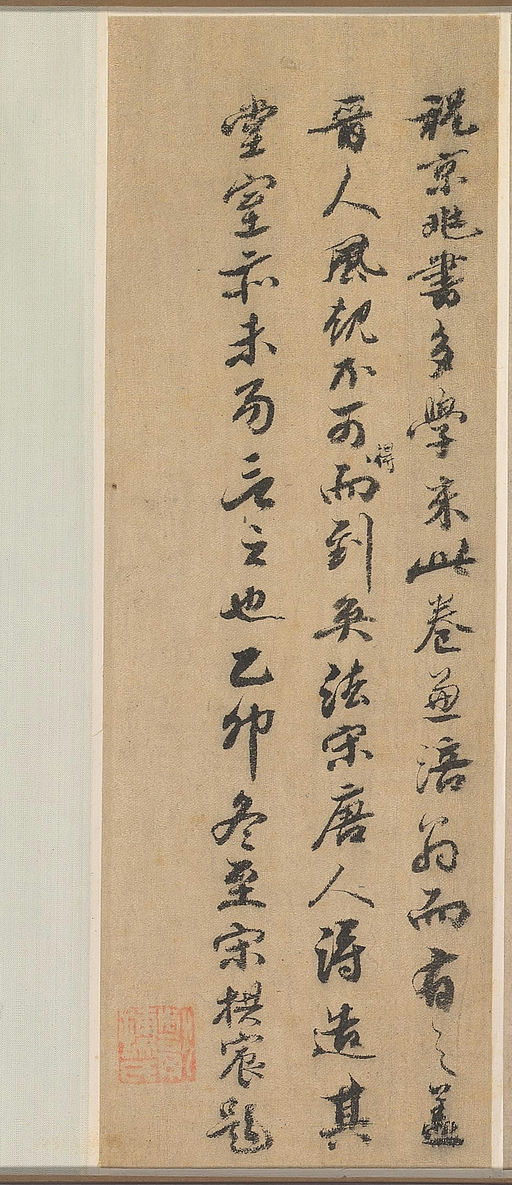 祝京兆書多學米此卷兼涪翁而有之蓋
晉人風規不可得而到矣法宋唐人得造其
堂室亦未易言之也乙卯冬至宋拱宸題